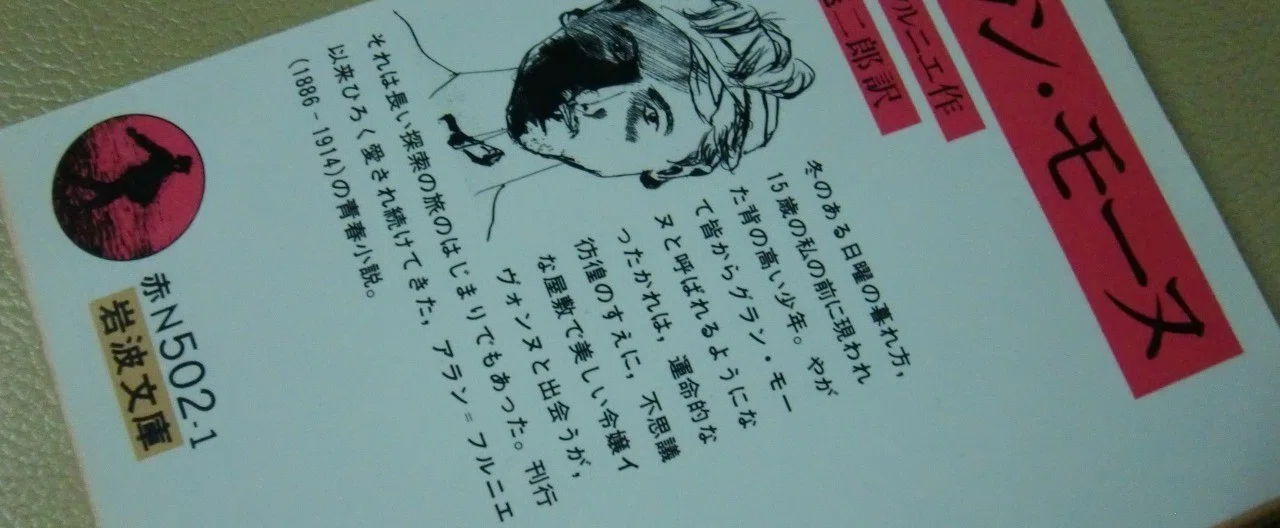 ン・モーヌ
ルニエ作
二郎訳
冬のある日曜の暮れ方,
15歳の私の前に現われ
た背の高い少年。やが
て皆からグラン・モー
ヌと呼ばれるようにな
ったかれは,運命的な
彷徨のすえに,不思議
な屋敷で美しい令嬢イ
ヴォンヌと出会うが,
それは長い探索の旅のはじまりでもあった。刊行
以来ひろく愛され続けてきた,アラン=フルニエ
(1886-1914)の青春小説。
赤N502-1
岩波文庫